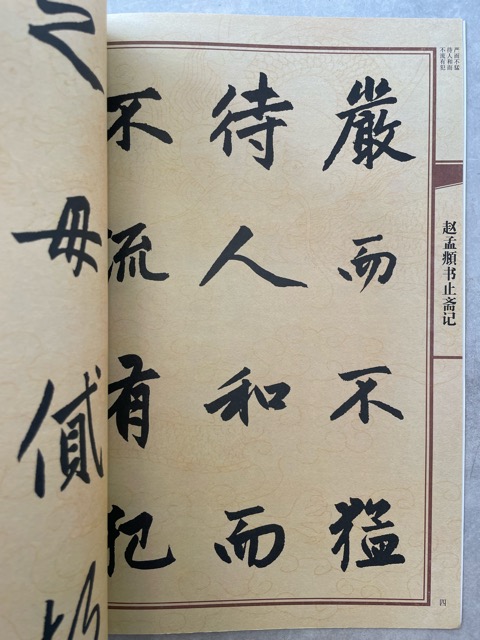 嚴而不猛
待人和而
不流有犯
严而不猛
待人和而
不流有犯
赵孟頫书止斋记
四
之毋貸